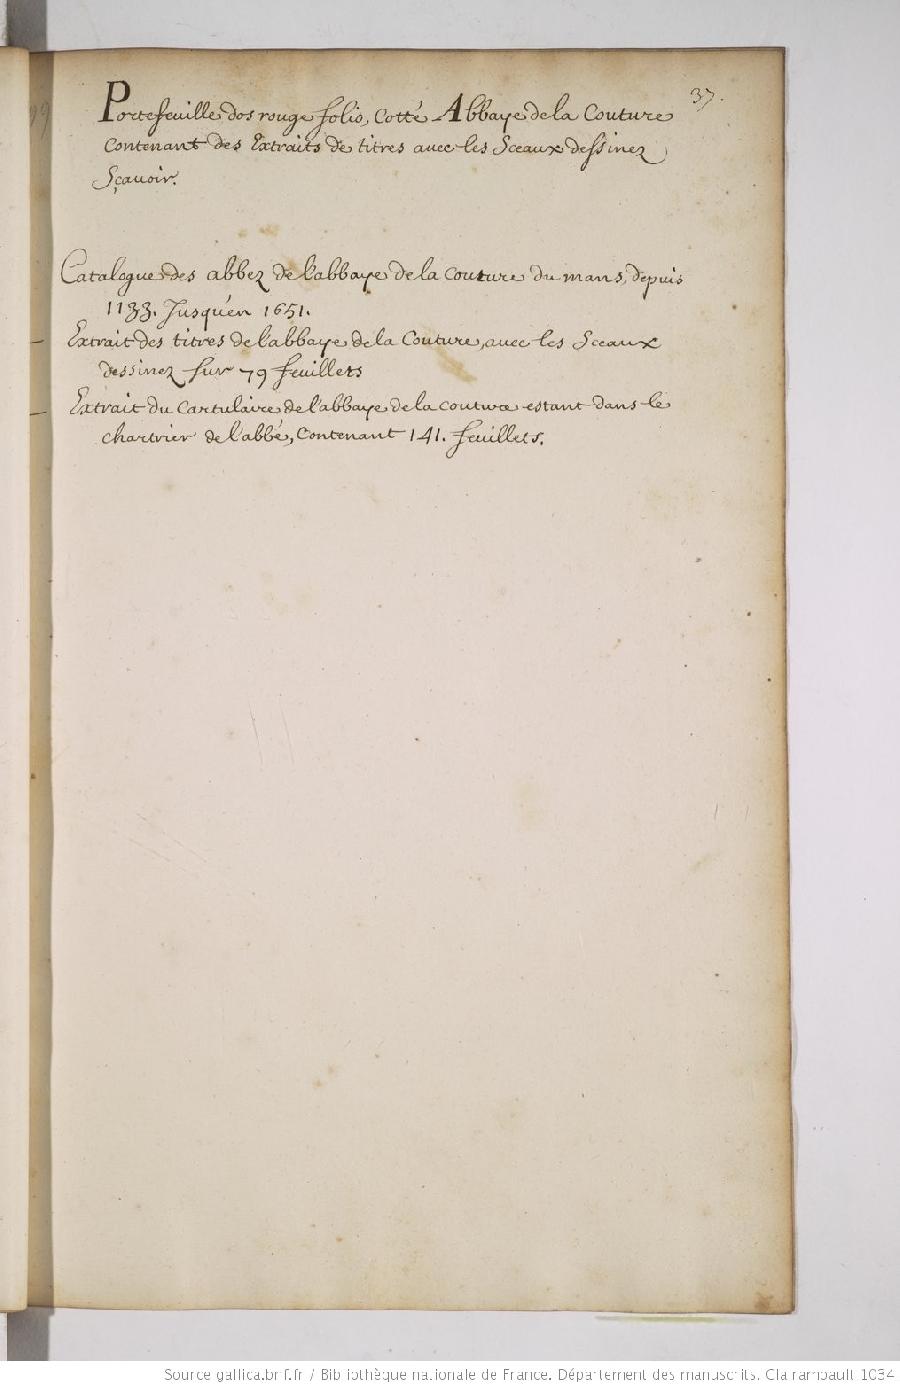 37.
Portefeuille dos rouge folio, Cotté Abbaye de la Couture
Contenant des Extraits de titres avec les Sceaux dessinez
Sçavoir.
Catalogue des abbez de l'abbaye de la Couture du mans, depuis
1133. Jusqu'en 1651.
Extrait des titres de l'abbaye de la Couture, avec les Sceaux
dessinez sur 79 feuillets
Extrait du Cartulaire de l'abbaye de la couture estant dans le
chartrier de l'abbé, Contenant 141. feuillets.
Source gallica.bnf.fr / Bibliothèque nationale de France. Département des manuscrits. Clairambault 1034